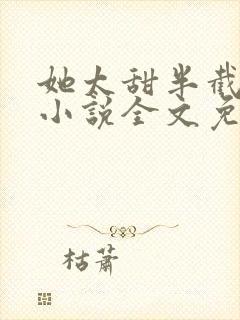 她太甜半截
小说全文免
枯萧